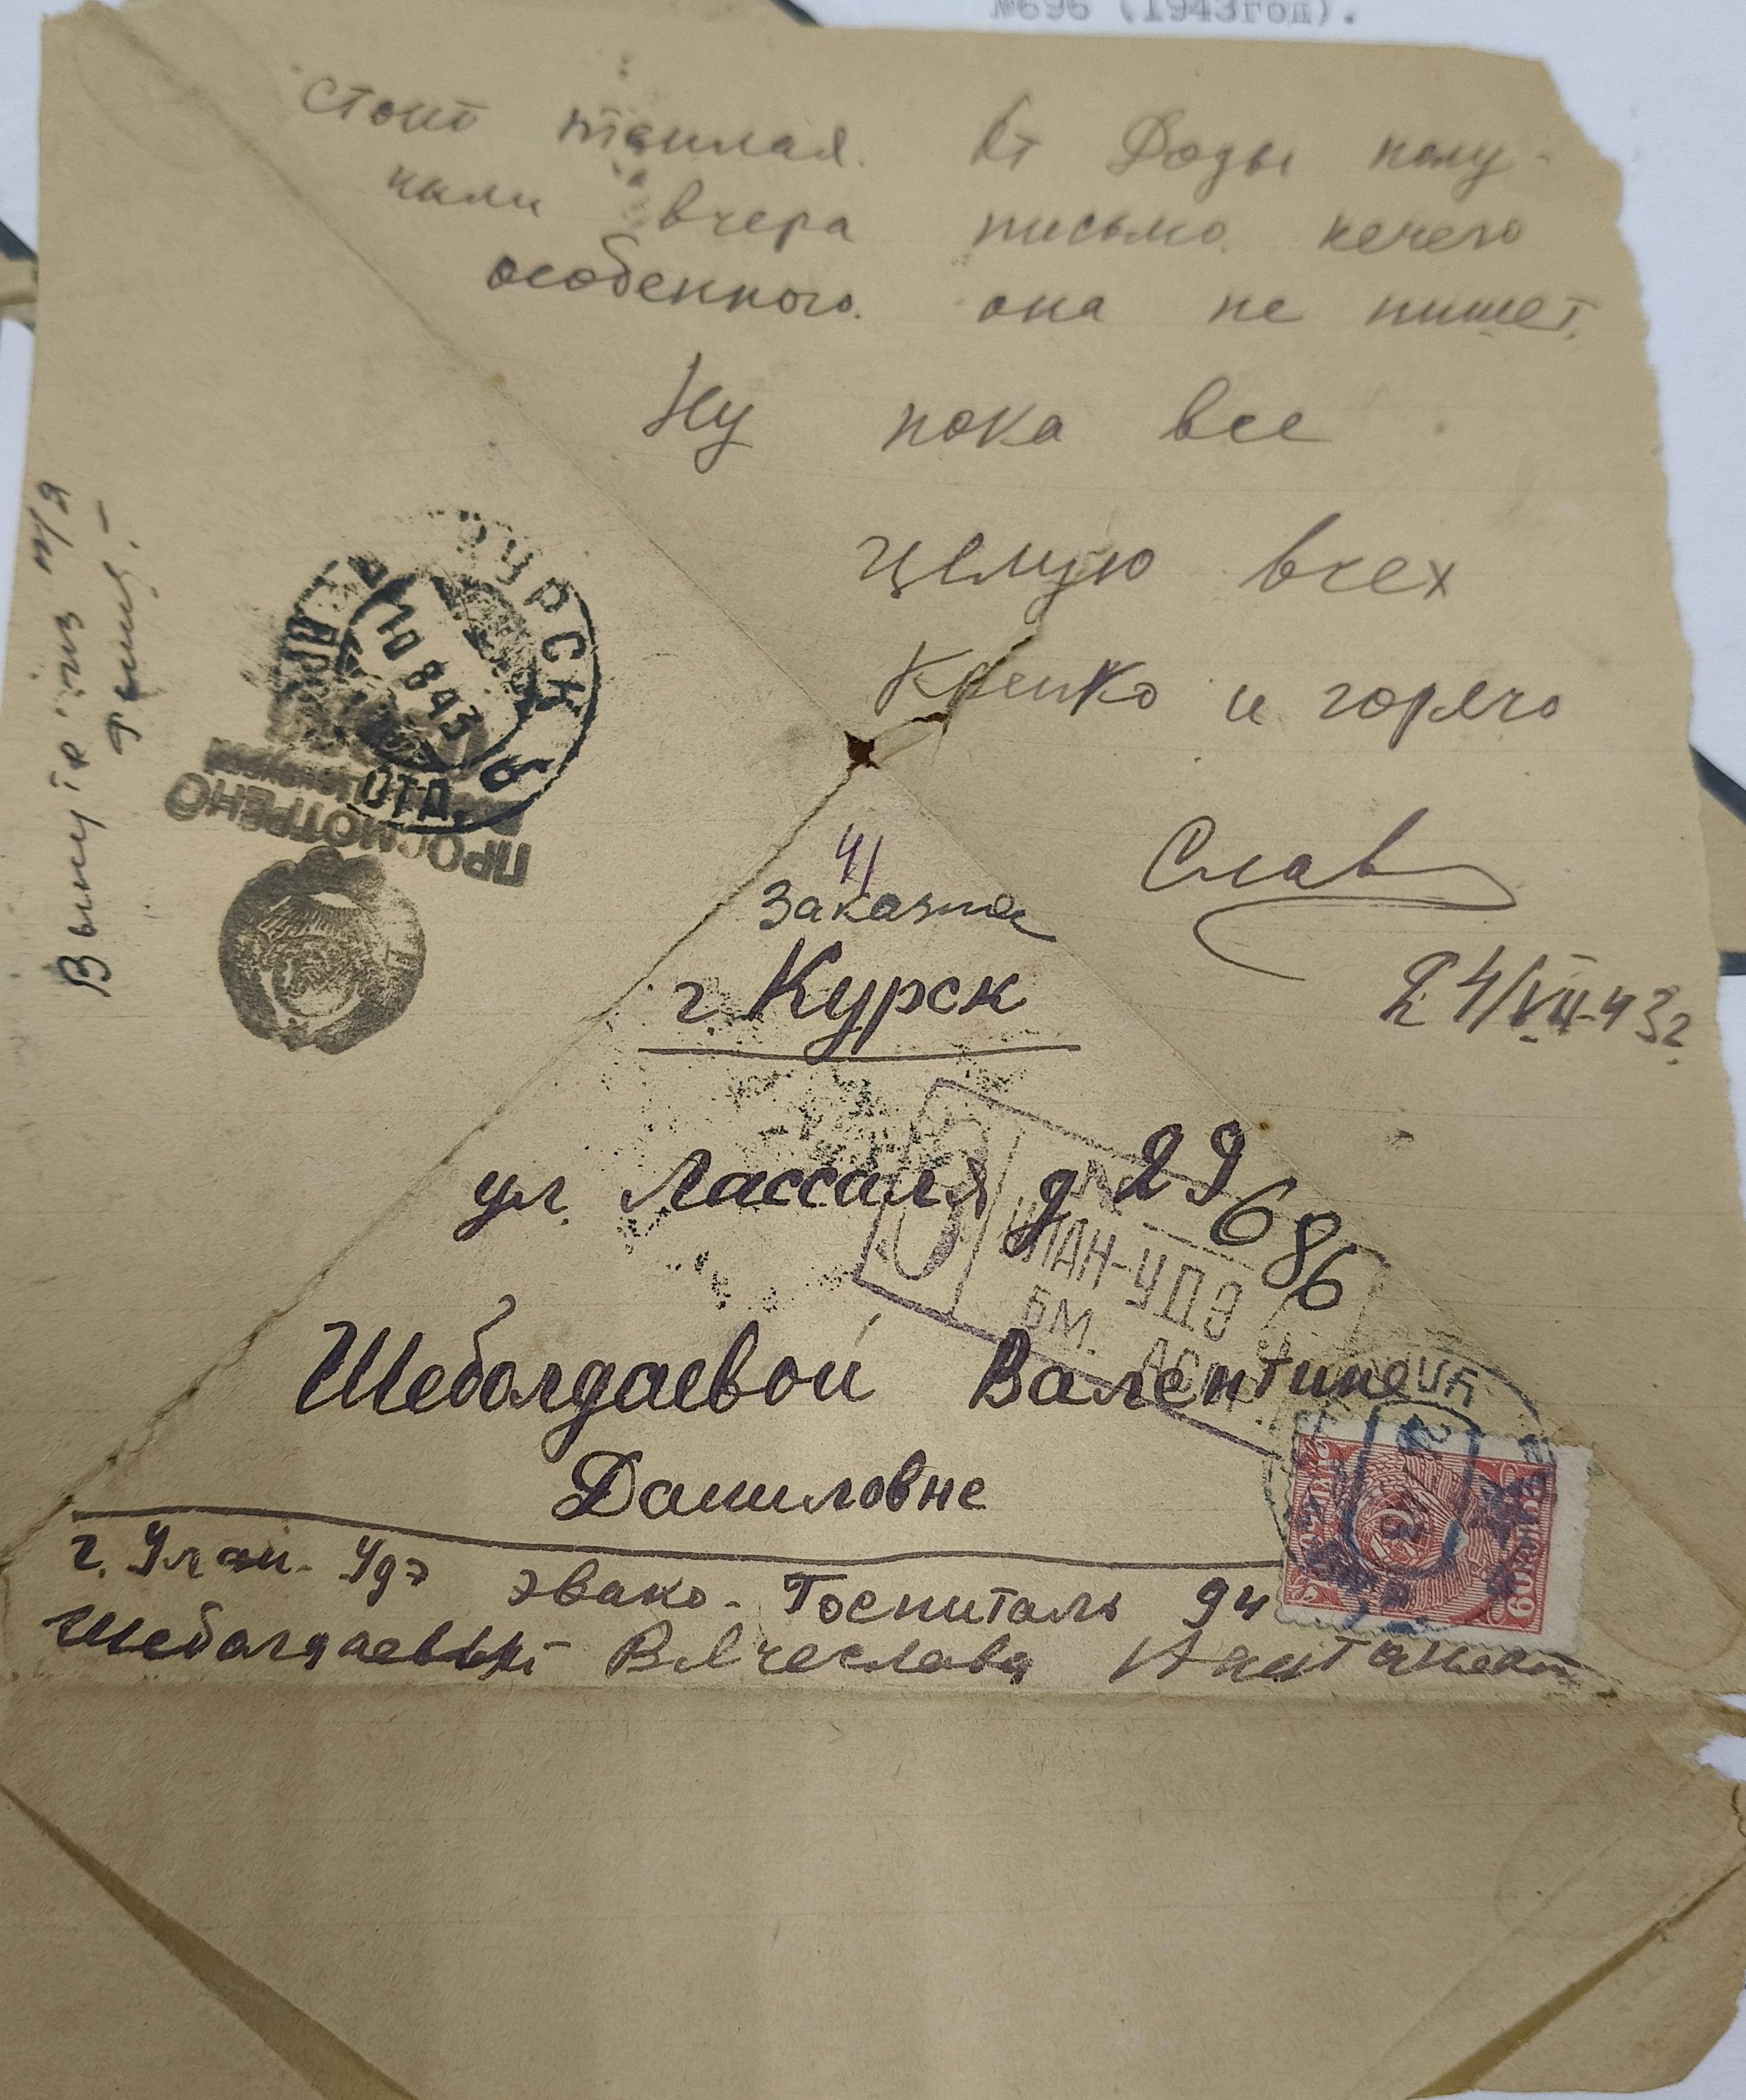 №696 (1943год).
стоит теплая. От Доды полу-
чили вчера письмо. нечего
особенного. она не пишет.
Ну пока все
Целую всех
Крепко и горячо
Слав
24/VII-43г.
Вынуто из п/я
КУРСК 6
10 8 43
ОТД.
ПРОСМОТРЕНО
Заказное
г. Курск
ул. Лассаля д 29
686
З
УЛАН-УДЭ
БМ. АС
Шеболдаевой Валентине
Даниловне
60 КОП
г. Улан-Удэ эвако-Госпиталь 94
Шеболдаевый Вячеслава